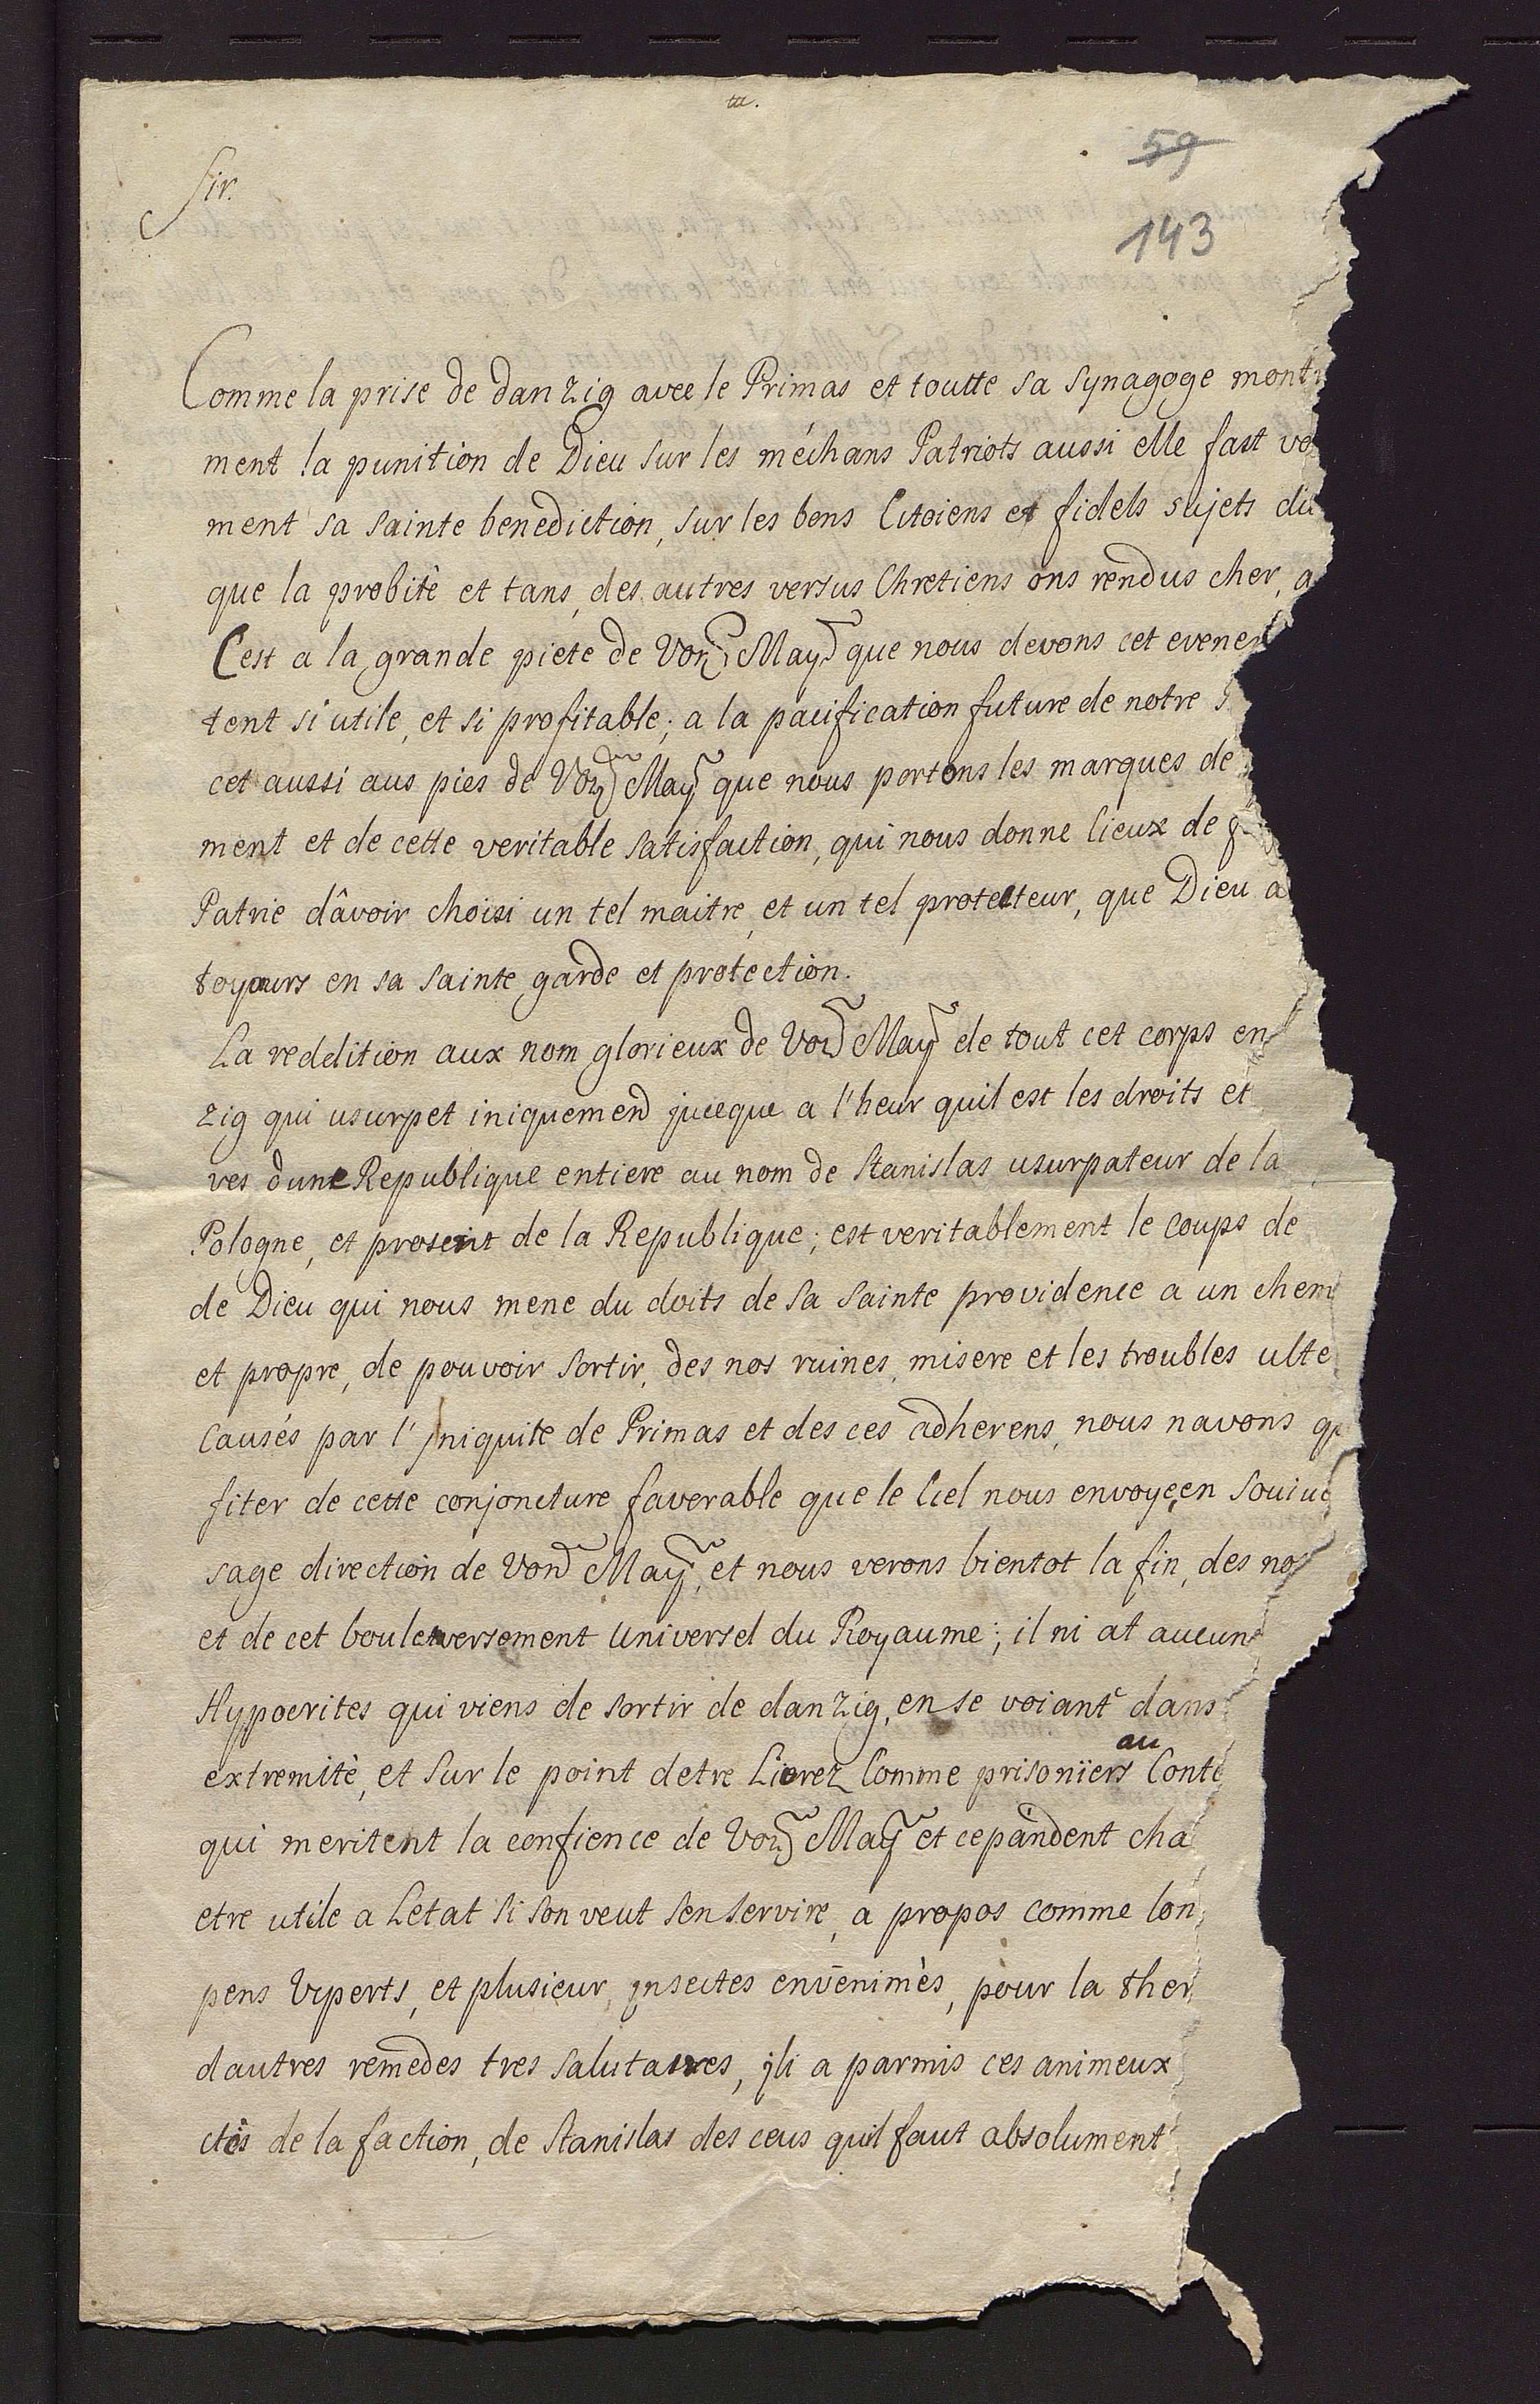 59
Sir.
143
Comme la prise de danzig avec le Primas et toutte sa synagoge mont
ment la punition de Dieu sur les méchans Patriots aussi elle fast vo
ment sa sainte benediction, sur les bons Citoiens et fidels sujets du
que la probitè et tans, des autres versus Chretiens ons rendus cher, a
C'est a la grande piete de Vor May que nous devons cet evenem
tent si utile, et si profitable; a la pacification future de notre
cet aussi aus pies de Vor May que nous portons les marques de
ment et de cette veritable satisfaction, qui nous donne lieux de f
Patrie dâvoir choisi un tel maitre, et un tel protecteur, que Dieu a
toyours en sa sainte garde et protection.
La reddition aux nom glorieux de Vor May de tout cet corps en
zig qui usurpet iniquemend juceque a l'heur quil est les droits et
ves dune Republique entiere au nom de Stanislas usurpateur de la
Pologne, et proscrit de la Republique; est veritablement le coups de
de Dieu qui nous mene du doits de sa sainte providence a un chem
et propre, de pouvoir sortir, des nos ruines, misere et les troubles ulte
causés par l'jniquite de Primas et des ces adherens, nous navons q
fiter de cette conjoncture faverable que le Ciel nous envoye, en souiu
sage direction de Vor May, et nous verons bientot la fin, des nos
et de cet bouleversement universel du Royaume; il ni at aucun
Hypocrites qui viens de sortir de danzig, en se voiant dans
extremitè, et sur le point detre Livrez Comme prisoniers au Conte
qui meritent la confience de Vor May et cepândent cha
etre utile a Letat si son veut sen servire, a propos comme lon
pens Viperts, et plusieur, jnsectes envenimès, pour la ther
dautres remedes tres salutaires, jli a parmis ces animeux
ctès de la faction, de Stanislas des ceus quil faut absolument